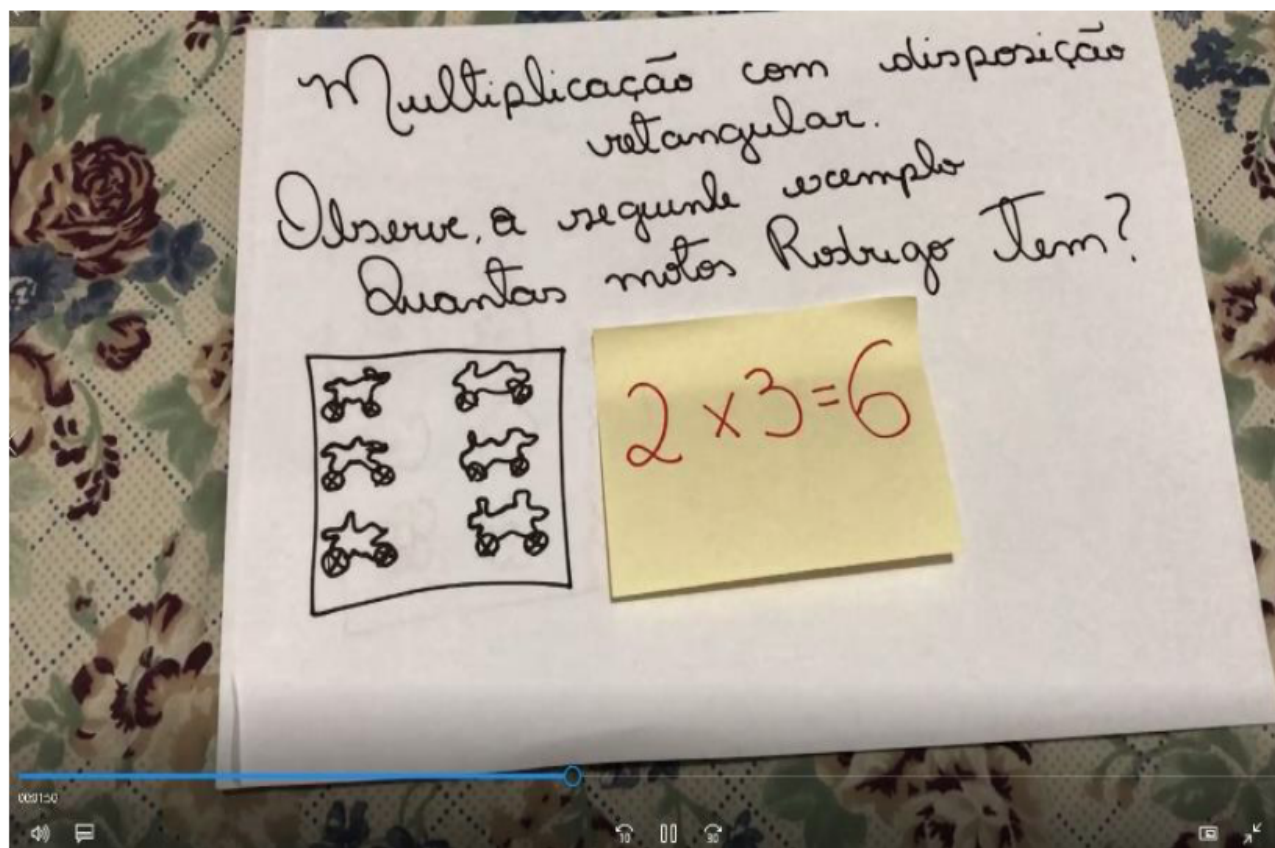 Multiplicação com disposição
retangular.
Observe, a seguinte exemplo
Quantas motos Rodrigo tem?
2 x 3 = 6
00:01:50
10
30